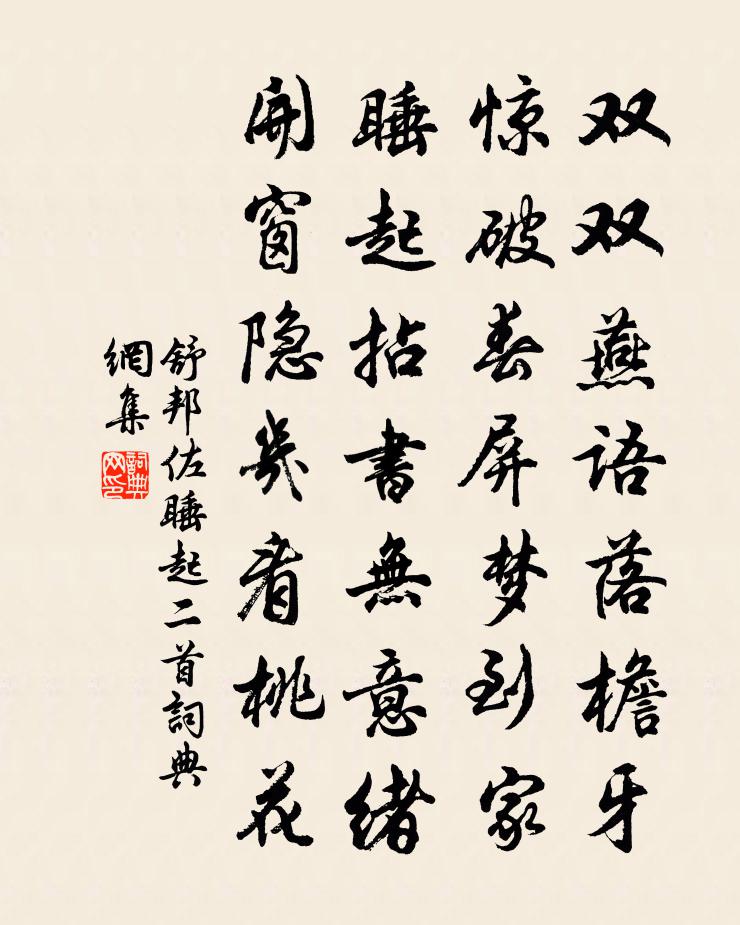 双双燕语落檐牙
惊破春屏梦到家
睡起拈書無意緒
開窗隐几看桃花
舒邦佐睡起二首詞典
網集
詞典
网印